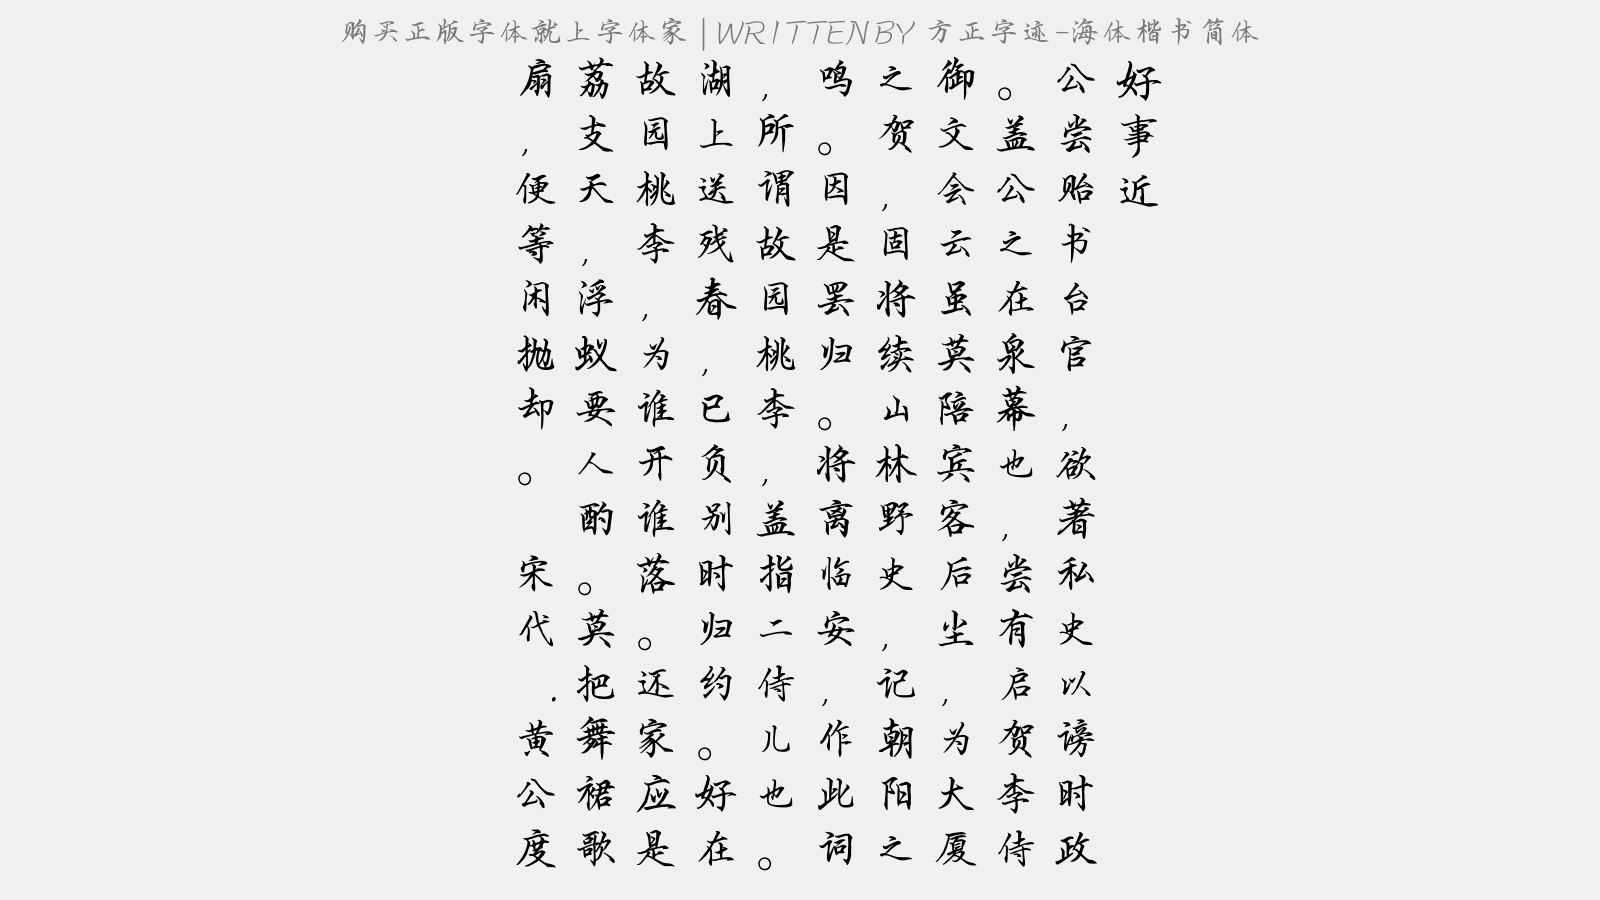 购买正版字体就上字体家|WRITTEN BY 方正字迹-海体楷书简体
好事近
公尝贻书台官,欲著私史以谤时政
。盖公之在泉幕也,尝有启贺李侍
御文会云虽莫陪宾客后尘,为大厦
之贺,固将续山林野史,记朝阳之
鸣。因是罢归。将离临安,作此词
,所谓故园桃李,盖指二侍儿也。
湖上送残春,已负别时归约。好在
故园桃李,为谁开谁落。还家应是
荔支天,浮蚁要人酌。莫把舞裙歌
扇,便等闲抛却。 宋代.黄公度